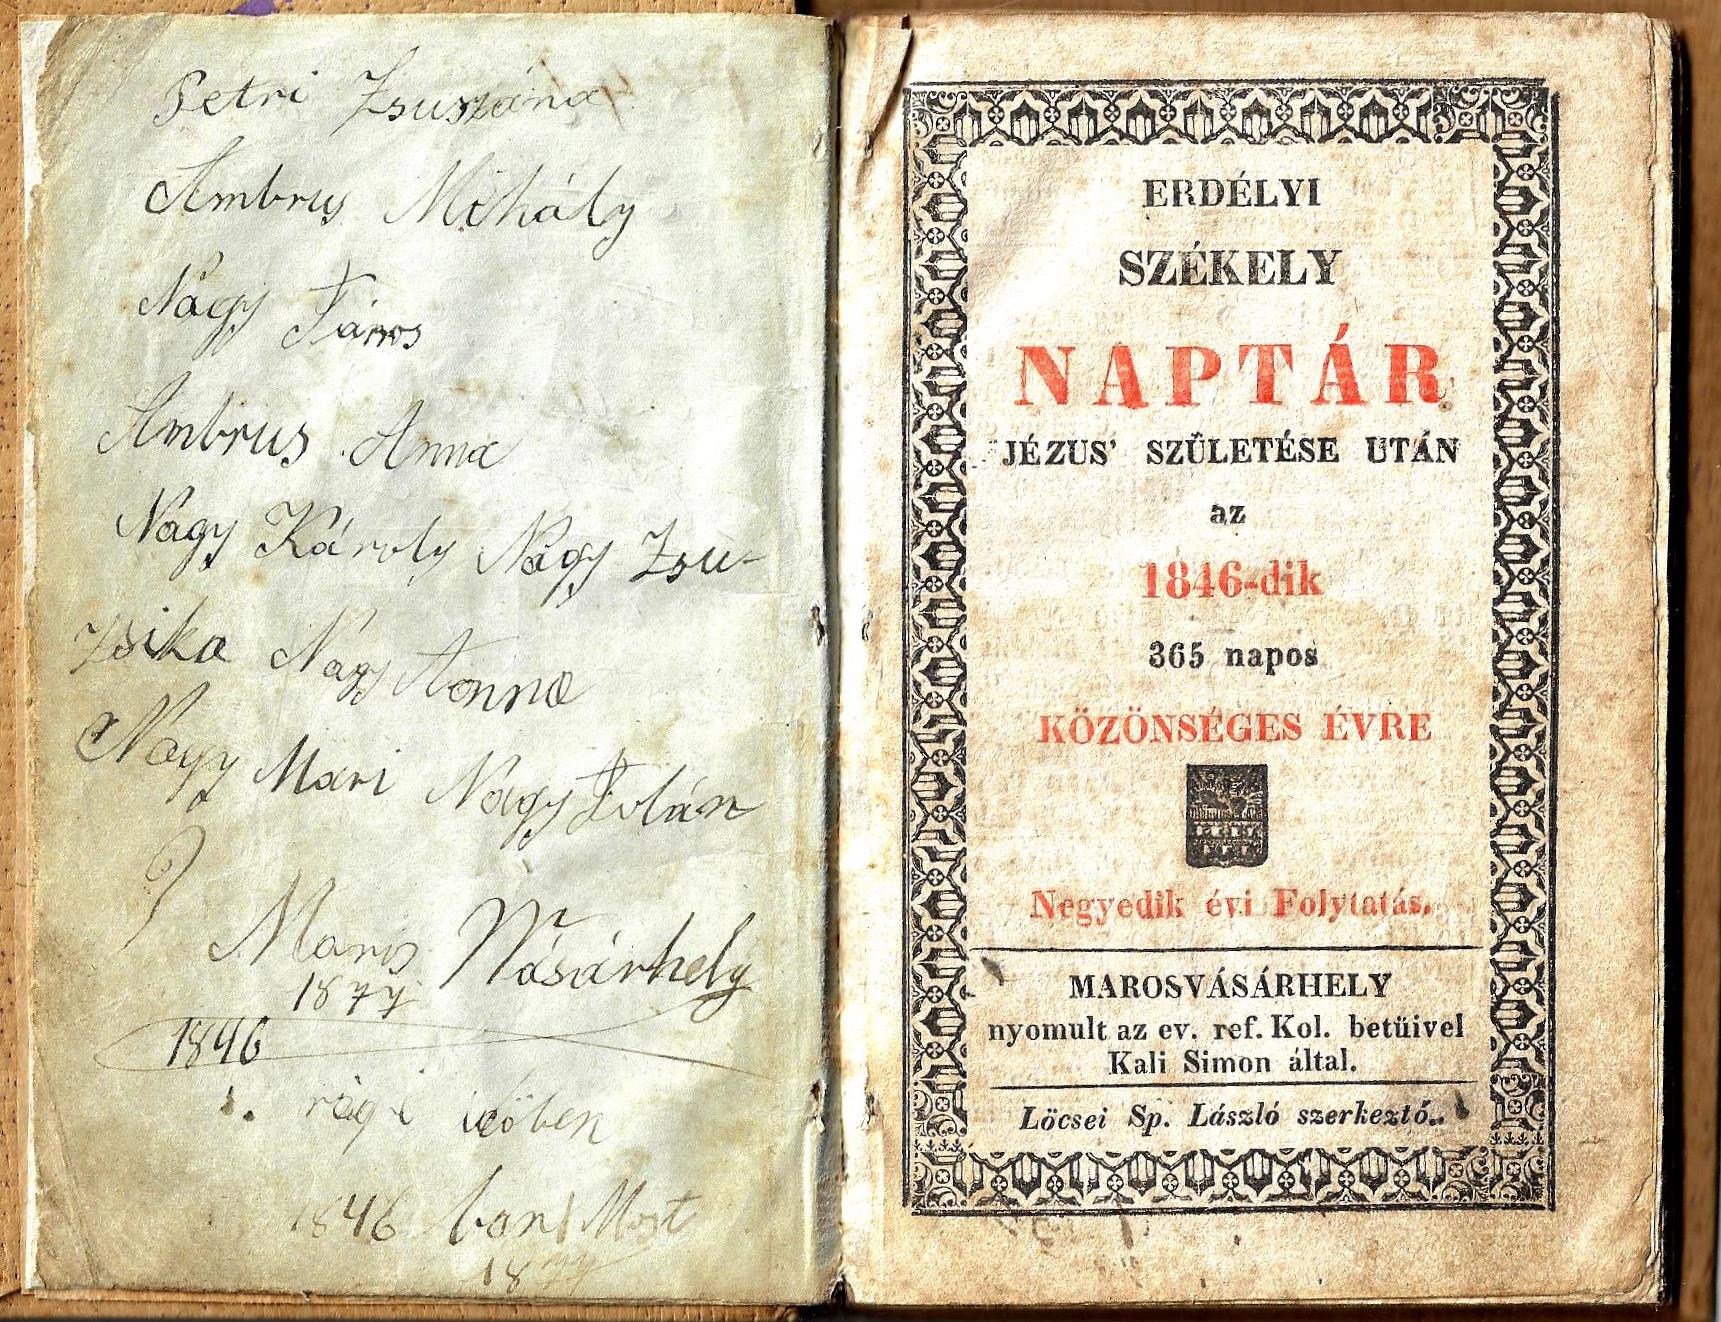 Petri Zsuszána
Ambrus Mihály
Nágy János
Ambrus Anna
Nágy Károly Nágy Zsu-
zsika Nágy Anna
Nagy Mari Nagy Zoltán
Maris Vásárhely
1877
1846
1. rági időben
1846 ban Most
18
ERDÉLYI
SZÉKELY
NAPTÁR
JÉZUS' SZÜLETÉSE UTÁN
az
1846-dik
365 napos
KÖZÖNSÉGES ÉVRE
Negyedik évi Folytatás.
MAROSVÁSÁRHELY
nyomult az ev. ref. Kol. betüivel
Kali Simon által.
Löcsei Sp. László szerkeztő.